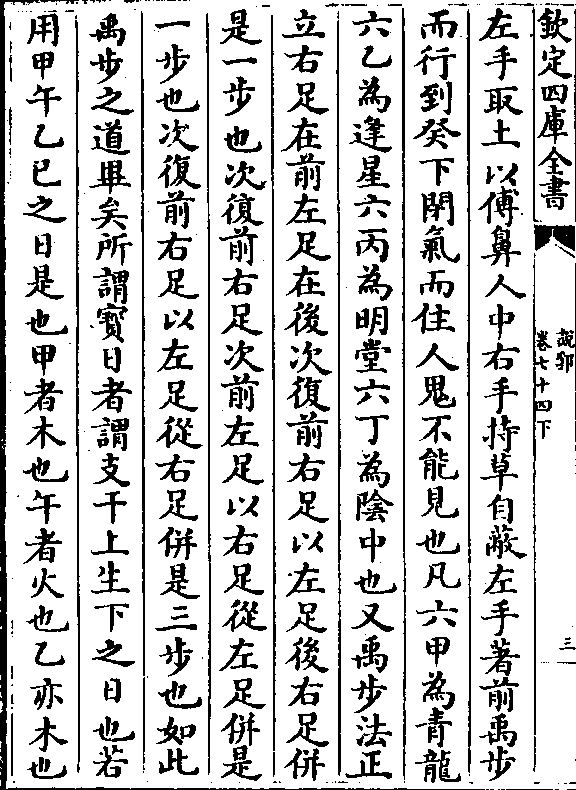 欽定四庫全書
說郛
卷七十四下
三
左手取土以傅鼻人中右手持草自蔽左手著前禹步
而行到癸下閉氣而住人鬼不能見也凡六甲為青龍
六乙為逢星六丙為明堂六丁為陰中也又禹步法正
立右足在前左足在後次復前右足以左足後右足併
是一步也次復前右足次前左足以右足從左足併是
一步也次復前右足以左足從右足併是三步也如此
禹步之道畢矣所謂寳日者謂支干上生下之日也若
用甲午乙巳之日是也甲者木也午者火也乙亦木也